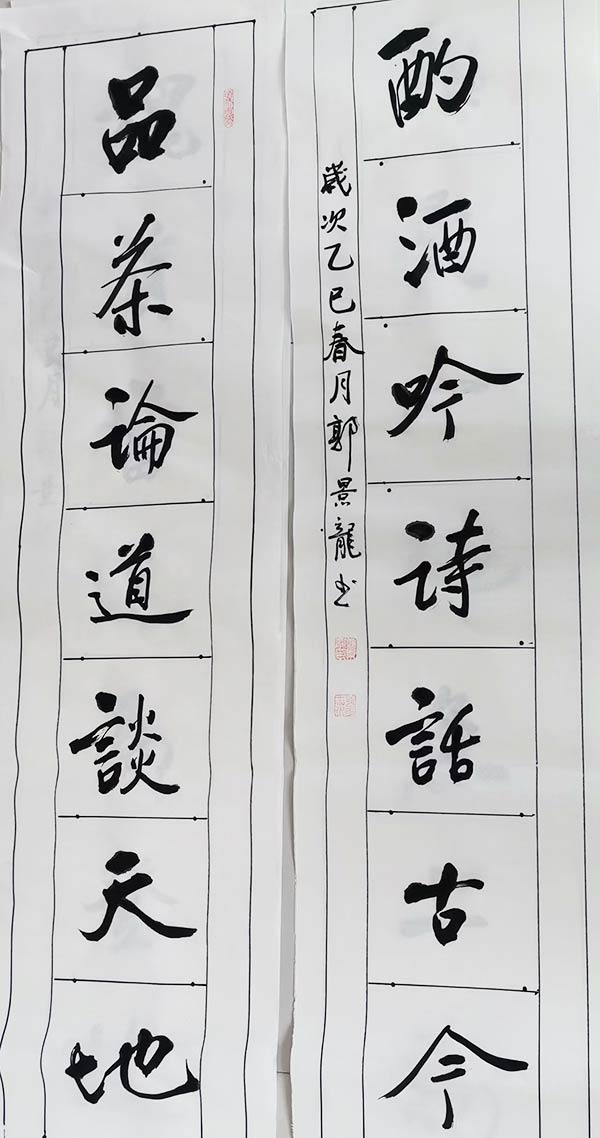 酌酒吟诗話古今
歲次乙巳春月郭景龍书
品茶论道談天地